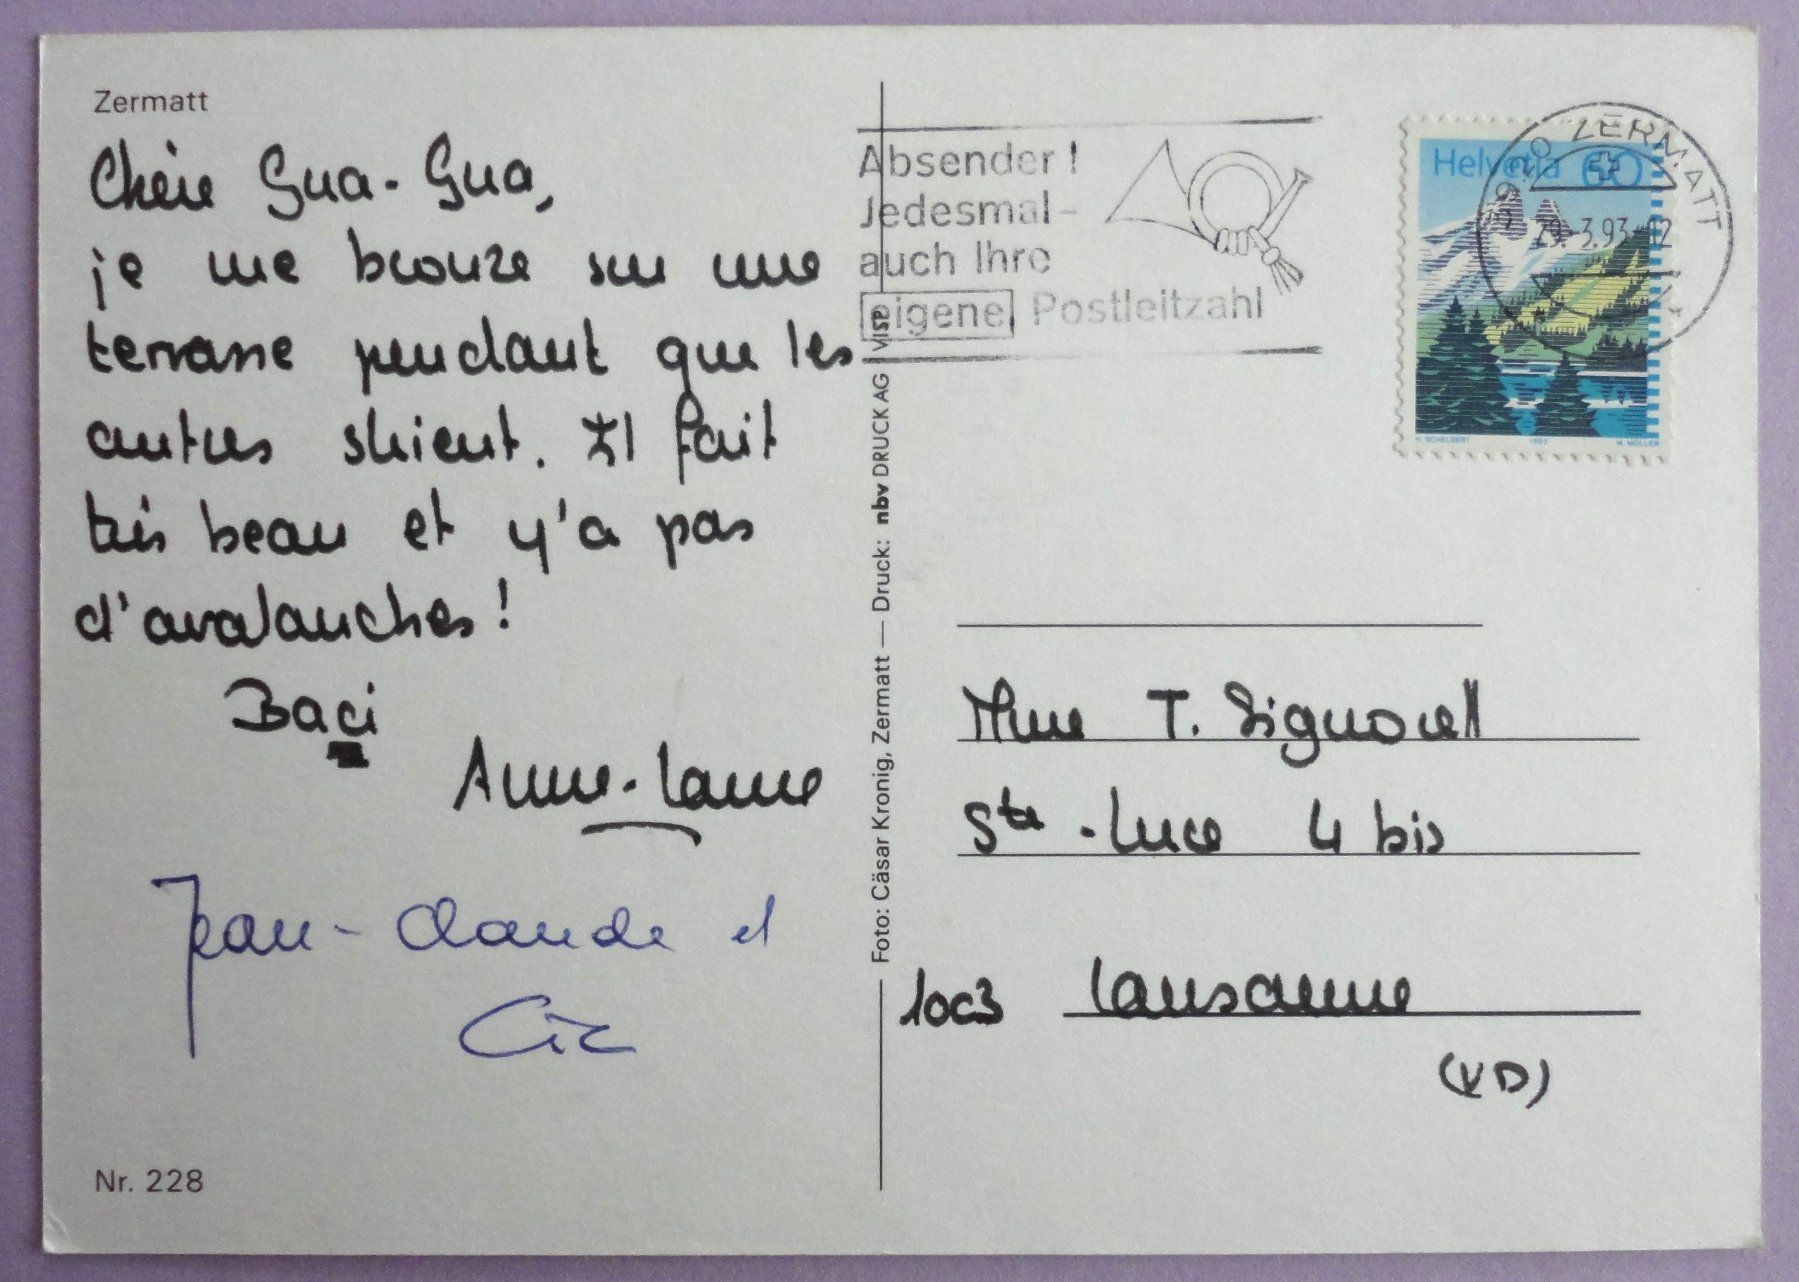 Zermatt
Chère Gua-Gua,
je me bronze sur une
terrasse pendant que les
autres skient. Il fait
très beau et y'a pas
d'avalanches!
Baci
Anne-Laure
Jean-Claude et
Cic
Nr. 228
Foto: Cäsar Kronig, Zermatt — Druck: nbv DRUCK AG VISP
Absender!
Jedesmal-
auch Ihre
eigene Postleitzahl
Helvetia 60
3920 ZERMATT
29.-3.93-12
H. SCHELBERT 1993 M. MÜLLER
Mme T. Signorell
Ste-Luce 4 bis
1003 Lausanne
(VD)